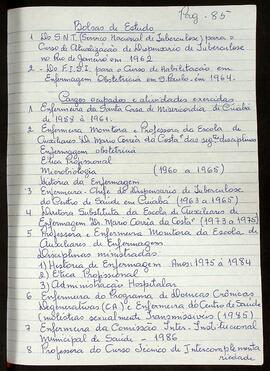 Pag - 85
Bolsas de Estudo
1 Do S.N.T. (Servico Nacional de Tuberculose) para o
Curso de Atualização de Dispensario de Tuberculose
no Rio de Janeiro em 1962
2 - Do F.I.S.I. para o Curso de Habilitação em
Enfermagem Obstetrica em S. Paulo - em 1964.
Cargos ocupados e atividades exercidas.
1 Enfermeira da Santa Casa de Misericordia de Cuiabá
de 1959 a 1961.
2 Enfermeira Monitora e Professora da Escola de
Auxiliares "Dr. Mario Corrêa da Costa" das segtes disciplinas
Enfermagem obstetrica
Etica Profissional
Microbiologia (1960 a 1965)
Historia da Enfermagem
3 Enfermeira-Chefe do Dispensario de Tuberculose
do Centro de Saúde em Cuiabá (1963 a 1965)
4 Diretora Substituta da Escola de Auxiliares de
Enfermagem "Dr. Mario Corrêa da Costa" (1973 a 1975)
5 Professora e Enfermeira Monitora da Escola de
Auxiliares de Enfermagem
Disciplinas ministradas
1) Historia de Enfermagem Anos: 1975 à 1984
2) Etica Profissional
3) Administração Hospitalar
6 Enfermeira do Programa de Doenças Crônicas
Degenerativas (C.A.) e Enfermeira do Centro de Saúde
(molestias sexualmente Transmissiveis (1985)
7 Enfermeira da Comissão Inter-Institucional
Municipal de Saúde - 1986
8 Professora do Curso Tecnico de Intercomplementa
riedade